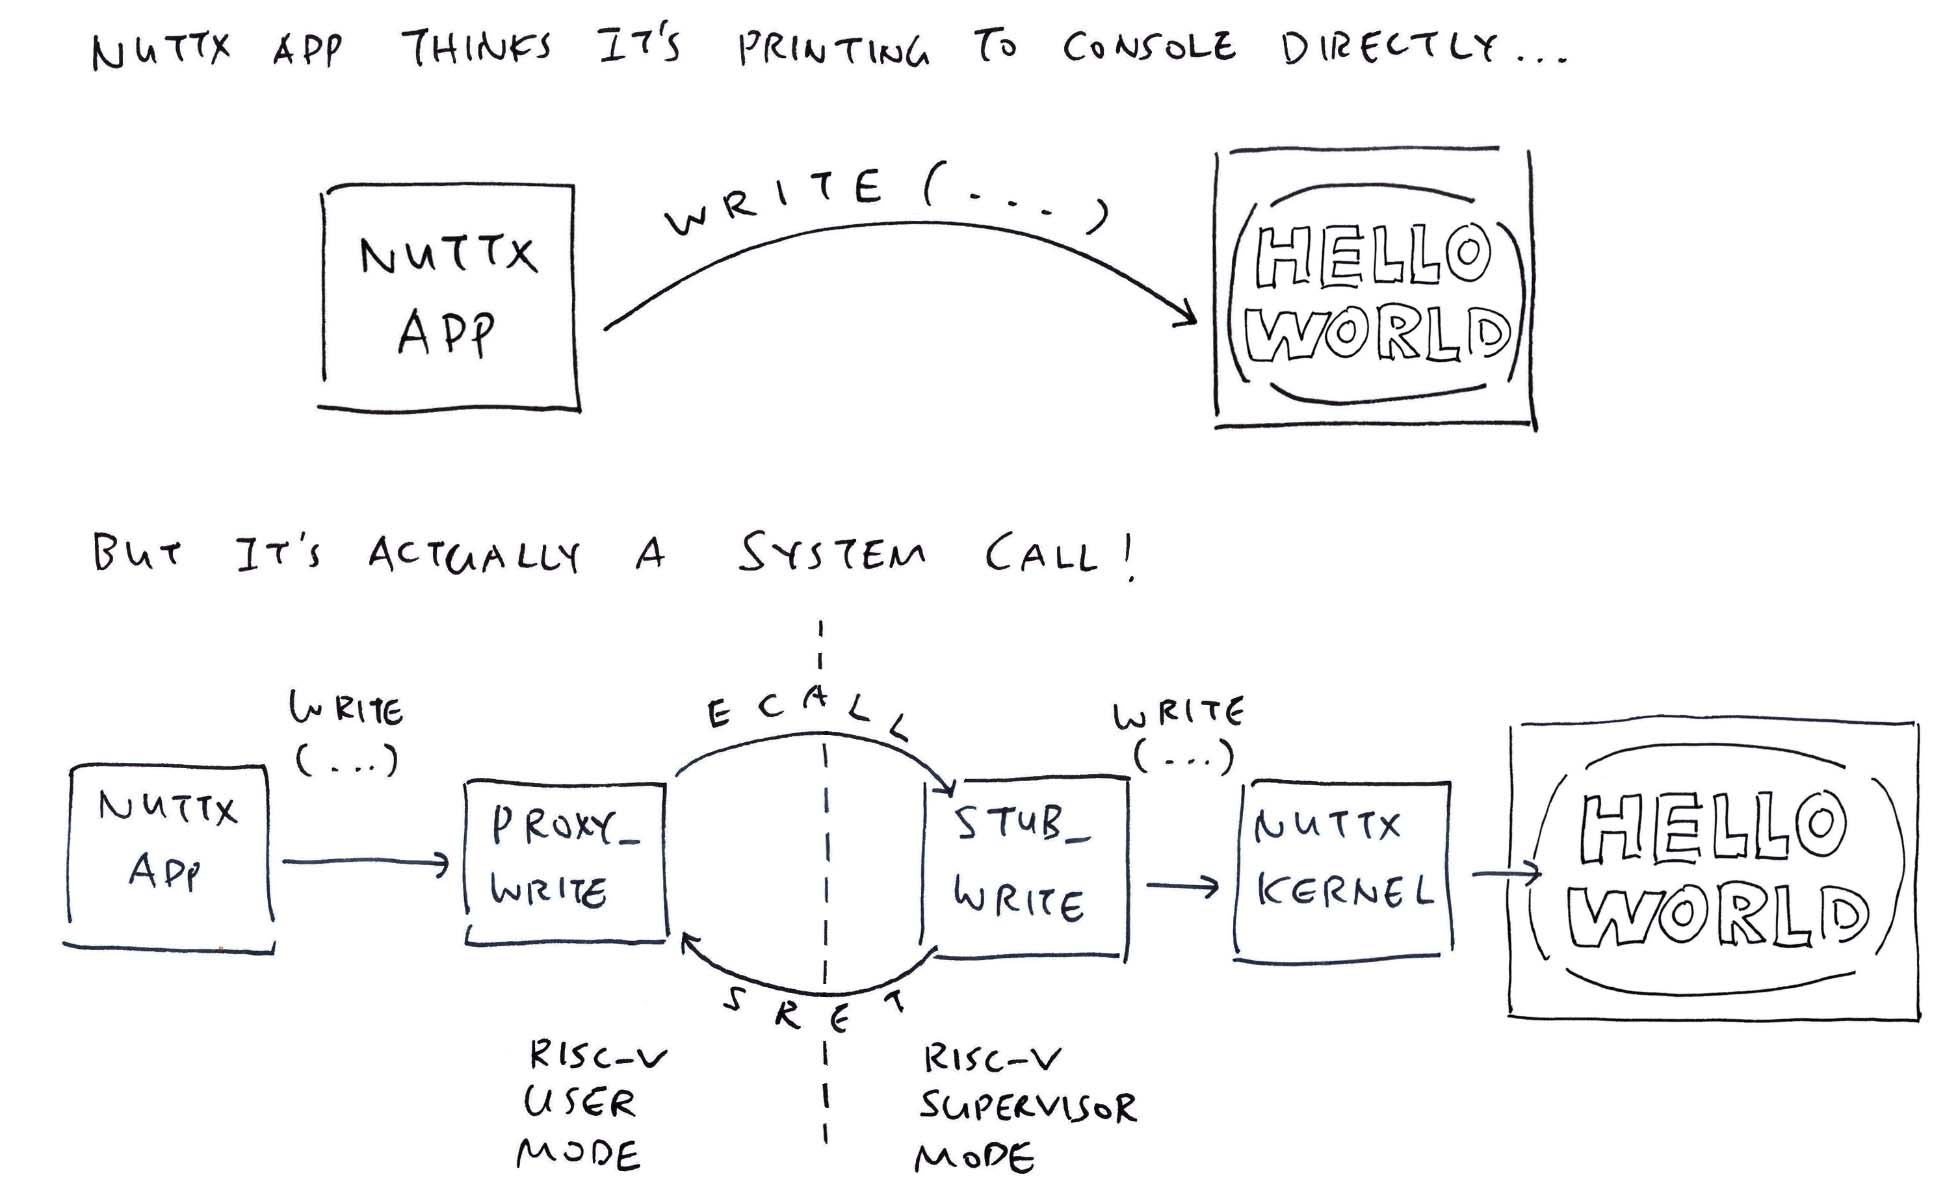 NUTTX APP THINKS IT'S PRINTING TO CONSOLE DIRECTLY...
WRITE (...)
NUTTX
APP
HELLO
WORLD
BUT IT'S ACTUALLY A SYSTEM CALL!
WRITE
(...)
ECALL
WRITE
(...)
NUTTX
APP
PROXY_
WRITE
STUB_
WRITE
NUTTX
KERNEL
HELLO
WORLD
SRET
RISC-V
USER
MODE
RISC-V
SUPERVISOR
MODE